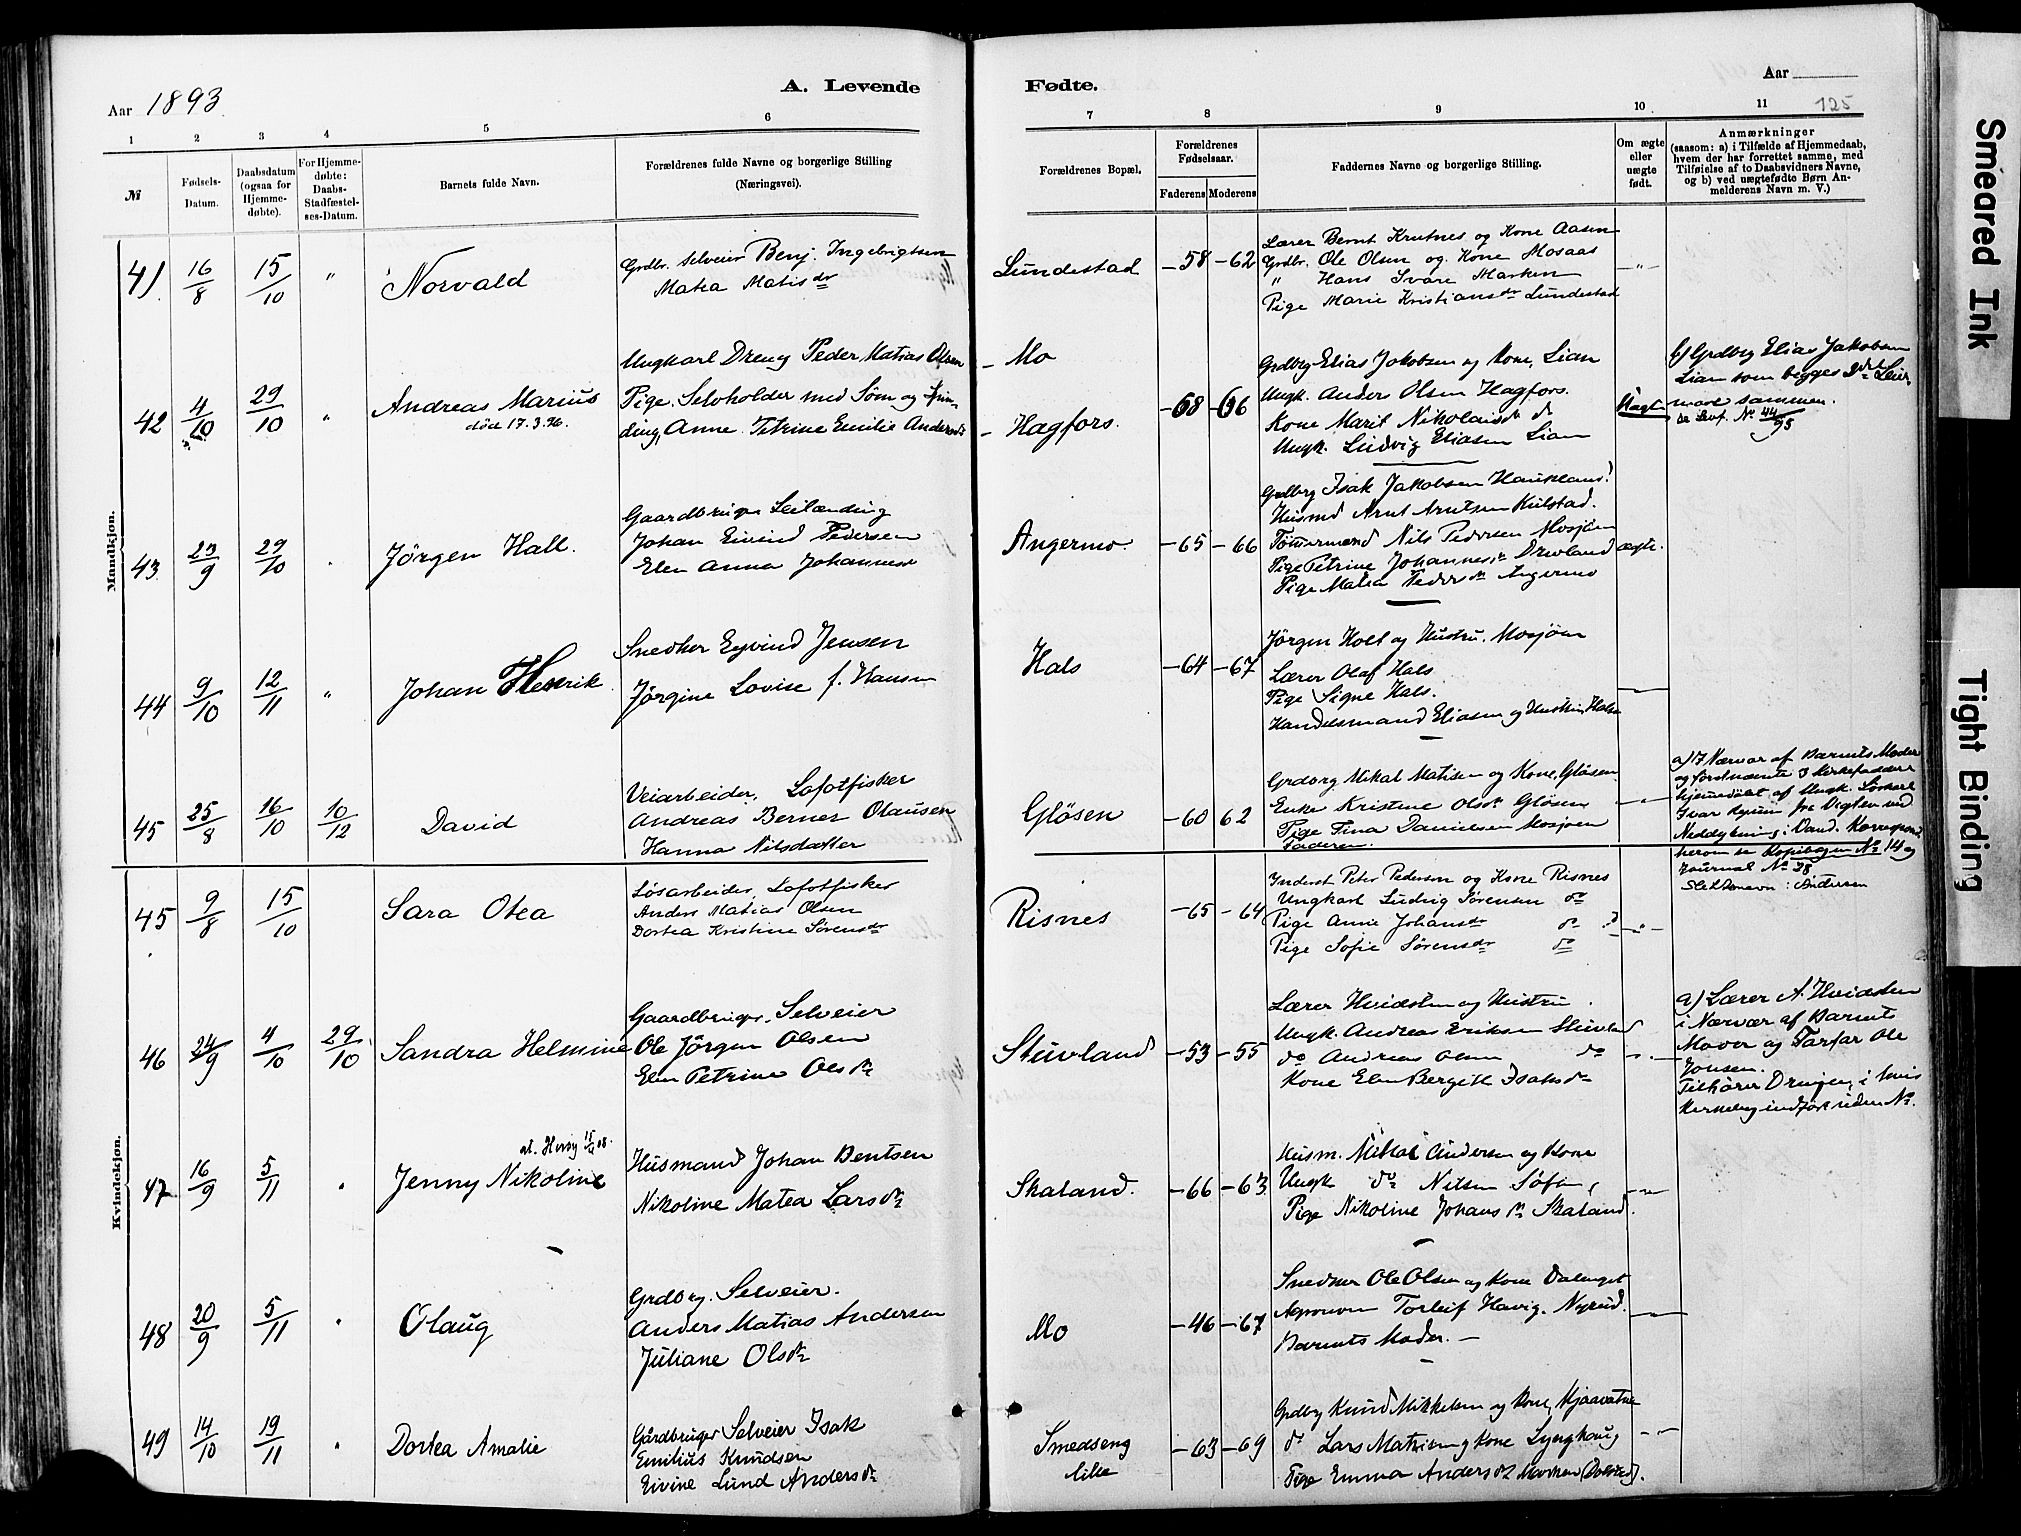 Aar 1893
A. Levende
Fødte.
Aar
125
1 2 3 4 5 6 7 8 9 10 11
№
Fødsels-Datum.
Daabsdatum (ogsaa for Hjemme-døbte).
For Hjemme-døbte: Daabs-Stadfæstel-ses-Datum.
Barnets fulde Navn.
Forældrenes fulde Navne og borgerlige Stilling
(Næringsvei).
Forældrenes Bopæl.
Forældrenes Fødselsaar.
Faderens Moderens
Faddernes Navne og borgerlige Stilling.
Om ægte eller uægte født.
Anmærkninger
(saasom: a) i Tilfælde af Hjemmedaab,
hvem der har forrettet samme, med
Tilføielse af to Daabsvidners Navne,
og b) ved uægtefødte Børn An-
melderens Navn m. V.)
Mandkjøn.
41 16/8 15/10 " Norvald
Grdbr. Selveier Benj. Ingebrigtsen
Matea Matisdr
Lundestad -58 -62
Lærer Bernt Krutnes og Kone Aasen
Grdbr. Ole Olsen og Kone Mosaas
" Hans Ivare Marken
Pige Marie Kristiansdr Lundestad
42 4/10 29/10 " Andreas Marius
død 17.3.96.
Ungkarl Dreng Peder Matias Olsen
Pige. Selvholder med Søm og Spin-
ding, Anne Petrine Emilie Andersdr
- Mo
- Hagfors. -68 -66
Grdbrg Elias Jakobsen og Kone, Lian
Ungk. Anders Olsen Hagfors.
Kone Marit Nikolaisdr do
Ungk. Ludvig Eliasen Lian
Uægte
b) Grdbrg Elias Jakobsen
Lian som begges 2det Leier-
maal sammen.
43 23/9 29/10 Jörgen Hall.
Gaardbruger Leilænding
Johan Eivind Pedersen
Elen Anna Johannesdr
Angermo. -65 -66
Grdbrg Isak Jakobsen Haukland
Husmd Arnt Arntsen Kulstad.
Tömmermand Nils Pedersen Mosjöen
Pige Petrine Johannesdr Drevland
Pige Matea Pedersdr Angermo
ægte.
44 9/10 12/11 " Johan Henrik
Snedker Eyvind Jensen
Jørgine Lovise f. Hansen
Hals -64 -67
Jörgen Holt og Hustru. Mosjöen
Lærer Olaf Hals
Pige Signe Hals.
Handelsmand Eliasen og Hustru, Hals
45 25/8 16/10 10/12 David
Veiarbeider, Lofotfisker
Andreas Berner Olausen
Hanna Nilsdatter
Glösen -60 62
Grdbrg Mikal Matisen og Kone, Glösen
Enke Kristine Olsdr Glösen
Pige Tina Danielsen Mosjöen
Faderen.
a) I Nærvær af Barnets Moder
hjemmedöbt af Ungk.
Neddykning i Vand.
herom se Kopibogen No 141 og
Journal No 38
Slektsnavn: Andersen
Kvindekjøn.
45 9/8 15/10 Sara Otea
Lösarbeider, Lofotfisker
Anders Matias Olsen
Dortea Kristine Sörensdr
Risnes -65 -64
Inderst Peter Pedersen og Kone Risnes
Ungkarl Ludvig Sörensen do
Pige Anne Johansdr do
Pige Sofie Sörensdr do
46 24/9 4/10 29/10 Sandra Helmine
Gaardbruger. Selveier
Ole Jörgen Olsen
Elen Petrine Olsdr
Stuvland -53 -55
Lærer Hvidsten og Hustru.
Ungk. Andreas Eriksen Stuvland
do Andreas Olsen do
Kone Elen Bergitte Isaksdr
a) Lærer A. Hvidsten
i Nærvær af Barnets
Mover og Farfar Ole
Jonsen.
47 16/9 5/11 Jenny Nikoline
Husmand Johan Bentsen
Nikoline Matea Larsdr
Skaland. -66 -63
Husm. Mikal Andersen og Kone
Ungk do Nilsen Söfn,
Pige Nikoline Johansdr Skaland.
48 20/9 5/11 Olaug
Grdbrg. Selveier.
Anders Matias Andersen
Juliane Olsdr
Mo -46 -67
Snedker Ole Olsen og Kone Dalenget
Agronom Torleif Havig. Nyrud.
Barnets Moder.
49 14/10 19/11 Dortea Amalie
Gårdbruger Selveier Isak
Emilius Knudsen
Eivine Lund Andersdr
Smedseng
lille -63 -69
Grdbrg Knud Mikkelsen og Kone, Kjaavatne
do Lars Matisen og Kone Lynghaug
Pige Emma Andersdr Marken (Dolstad).
Smeared Ink
Tight Binding